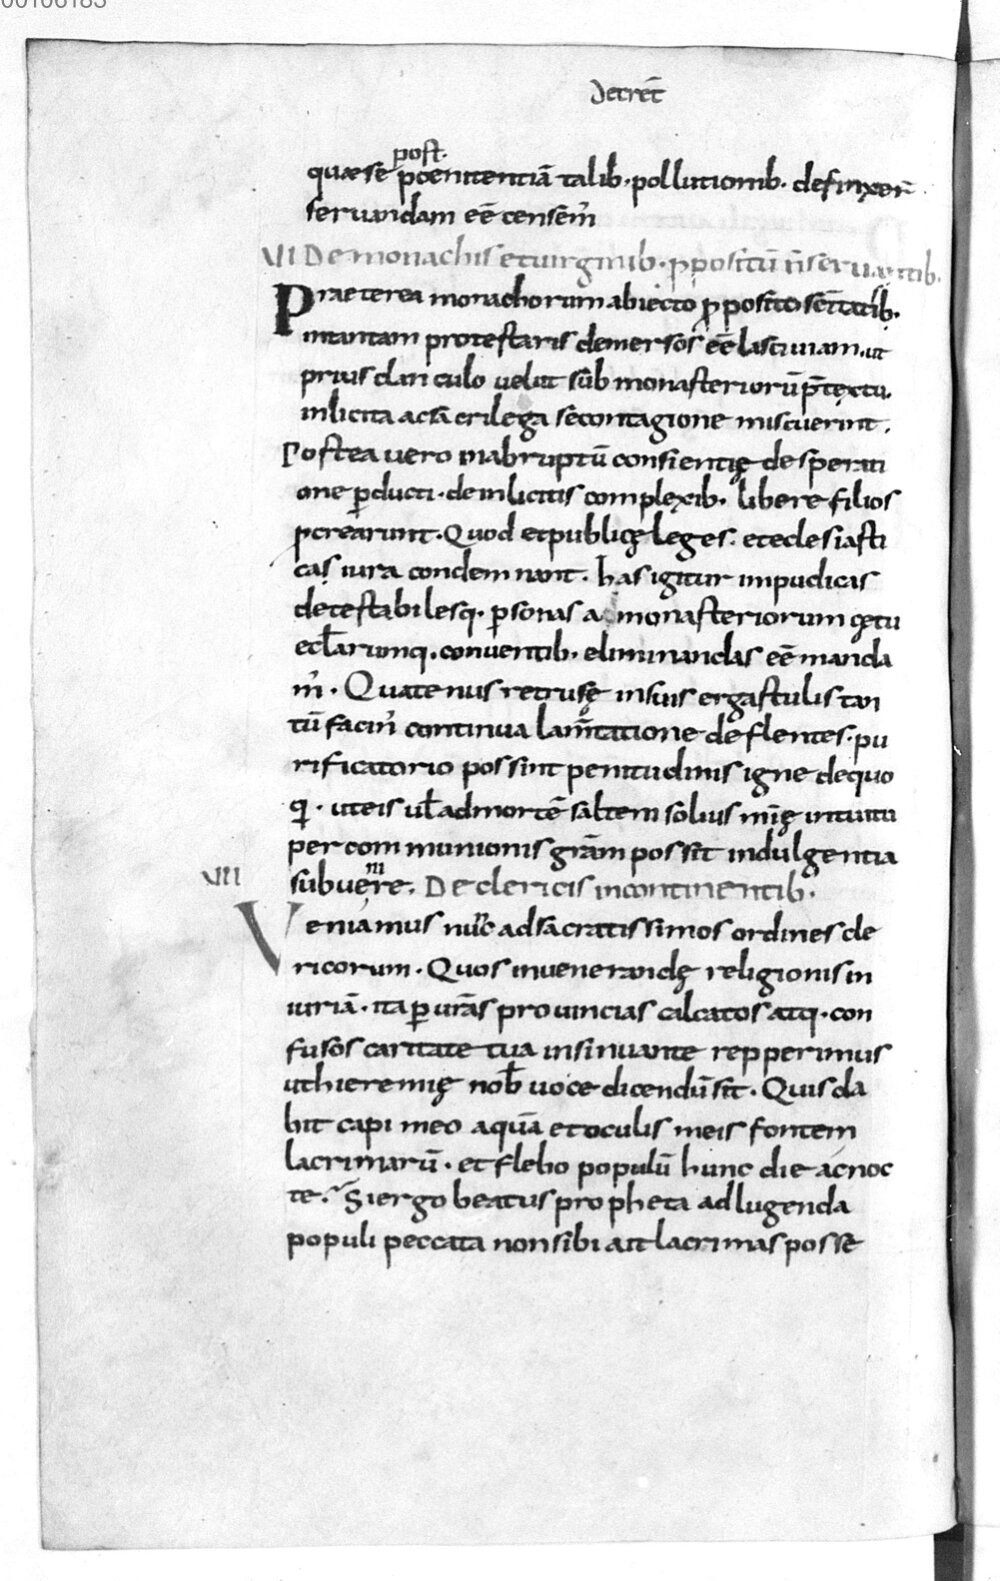 00106183
Decret̄
post.
quae se poenitentiā talib· pollutionib· definxer̄
seruandam eē censem̄
VI De monachis et uirginib· ꝓpositū n̄ seruantib·
Praeterea monachorum abiecto ꝓposito sc̄itatib·
intantam protestaris demersos eē lasciuiam· ut
prius clanculo uelut sub monasteriorū p̄textu.
inlicita ac sacrilega se contagione miscuerint.
Postea uero in abruptū consientię desperati
one ꝑducti· de inlicitis complexib· libere filios
ꝓcrearunt· Quod et publicę leges· et eclesiasti
cas iura condemnant· has igitur impudicas
detestabilesq· ꝑsonas a monasteriorum cętu
eccl̄arumq· conuentib· eliminandas eē manda
m̄· Quatenus retrusę in suis ergastulis tan
tū facin̄ continua lam̄tatione deflentes· pu
rificatorio possint penitudinis igne dequo
qi· ut eis ul̄ ad mortē saltem solius mīę intuitu
per communionis grām possit indulgentia
ni
VII subuere. De clericis incontinentib·
Veniamus nūc ad sacratissimos ordines cle
ricorum· Quos in uenerandę religionis in
iuriā· ita ꝑ urās prouincias calcatos atq· con
fusos caritate tua insinuante repperimus
ut hieremię nob̄ uoce dicendū sit· Quis da
bit capi meo aquā et oculis meis fontem
lacrimarū· et flebo populū hunc die ac noc
te· Si ergo beatus propheta ad lugenda
populi peccata non sibi ait lacrimas posse